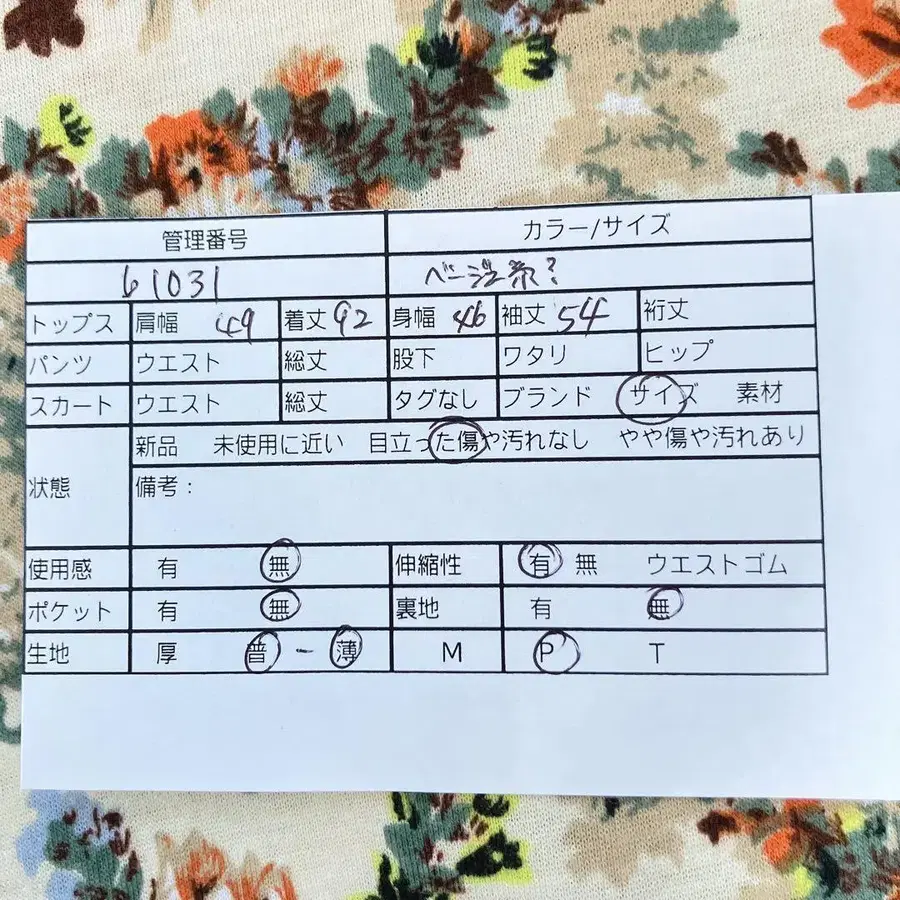 管理番号 カラー/サイズ
61031 ベージュ系?
トップス 肩幅 49 着丈 92 身幅 46 袖丈 54 裄丈
パンツ ウエスト 総丈 股下 ワタリ ヒップ
スカート ウエスト 総丈 タグなし ブランド サイズ 素材
状態 新品 未使用に近い 目立った傷や汚れなし やや傷や汚れあり
備考:
使用感 有 無 伸縮性 有 無 ウエストゴム
ポケット 有 無 裏地 有 無
生地 厚 普 - 薄 M P T